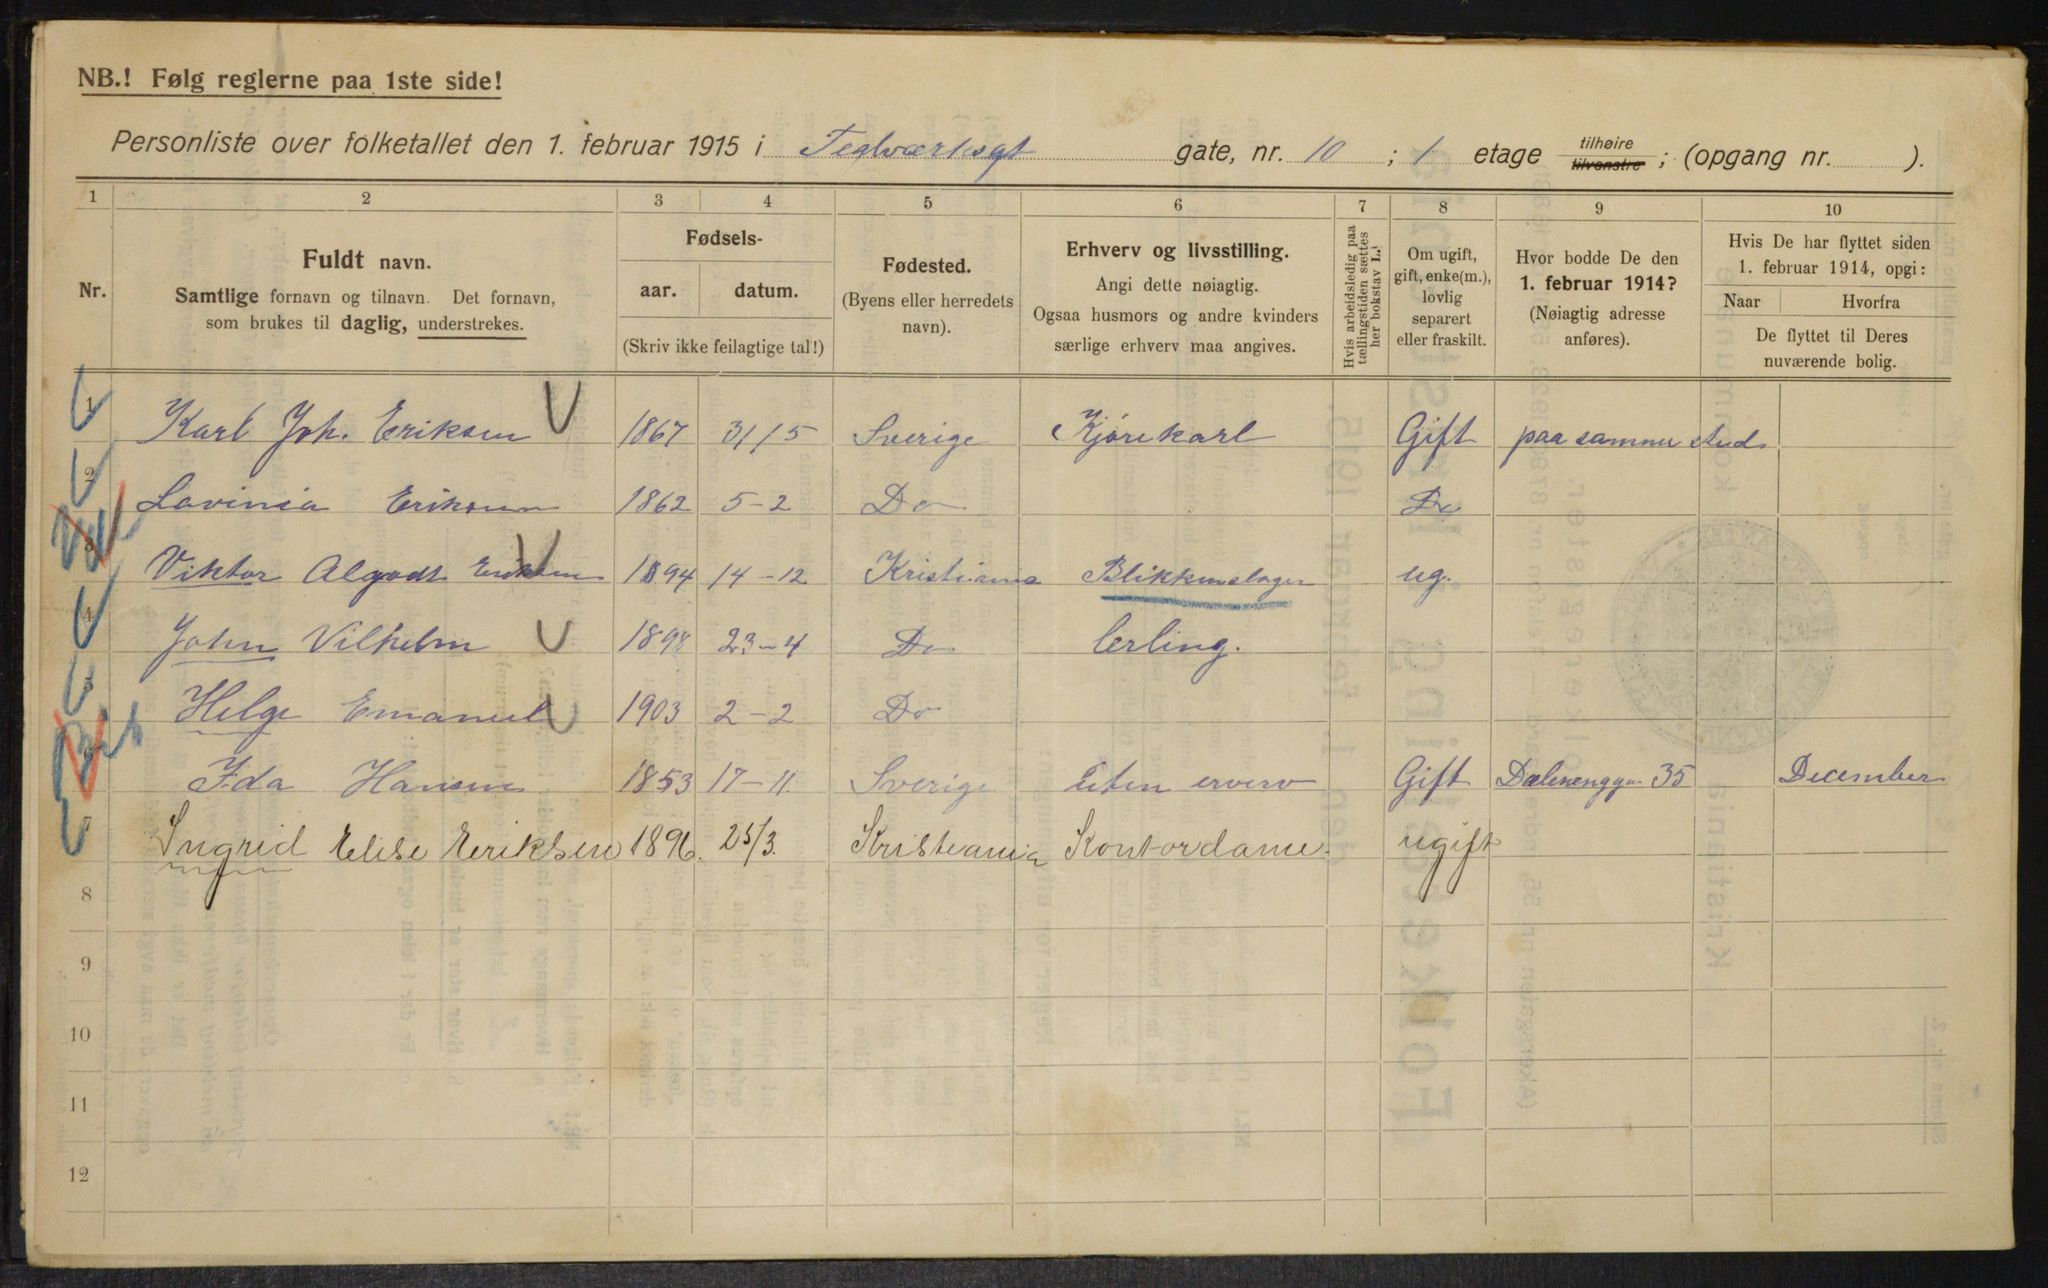 NB.! Følg reglerne paa 1ste side!
Personliste over folketallet den 1. februar 1915 i Teglværksgt gate, nr. 10 ; 1 etage tilhøire tilvenstre ; (opgang nr. ).
1 2 3 4 5 6 7 8 9 10
Nr.
Fuldt navn.
Samtlige fornavn og tilnavn. Det fornavn,
som brukes til daglig, understrekes.
Fødsels-
aar. datum.
(Skriv ikke feilagtige tal!)
Fødested.
(Byens eller herredets
navn).
Erhverv og livsstilling.
Angi dette nøiagtig.
Ogsaa husmors og andre kvinders
særlige erhverv maa angives.
Hvis arbeidsledig paa
tællingstiden sættes
her bokstav L.
Om ugift,
gift, enke(m.),
lovlig
separert
eller fraskilt.
Hvor bodde De den
1. februar 1914?
(Nøiagtig adresse
anføres).
Hvis De har flyttet siden
1. februar 1914, opgi:
Naar Hvorfra
De flyttet til Deres
nuværende bolig.
1 Karl Joh. Eriksen 1867 31/5 Sverige Kjørekarl Gift paa samme sted
2 Lovinia Eriksen 1862 5-2 Do Do
3 Viktor Algodt Eriksen 1894 14-12 Kristiania Blikkenslager ug.
4 John Vilhelm 1898 23-4 Do Erling.
5 Helge Emanuel 1903 2-2 Do
6 Ida Hansen 1853 17-11. Sverige Uten erverv Gift Dælenenggt. 35 December
7 Ingrid Elise Eriksen 1896. 25/3. Kristiania Kontordame. ugift
8
9
10
11
12